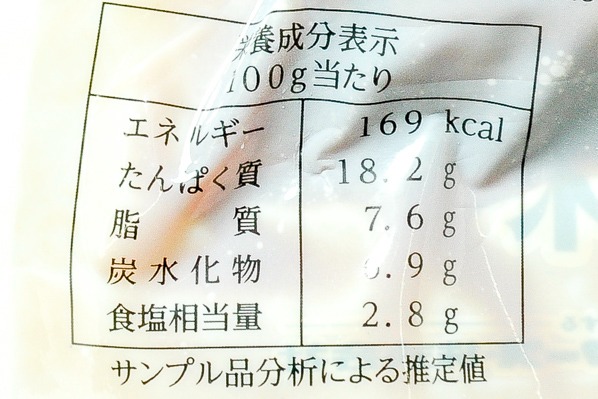 栄養成分表示
100g当たり
エネルギー 169 kcal
たんぱく質 18.2 g
脂質 7.6 g
炭水化物 g
食塩相当量 2.8 g
サンプル品分析による推定値